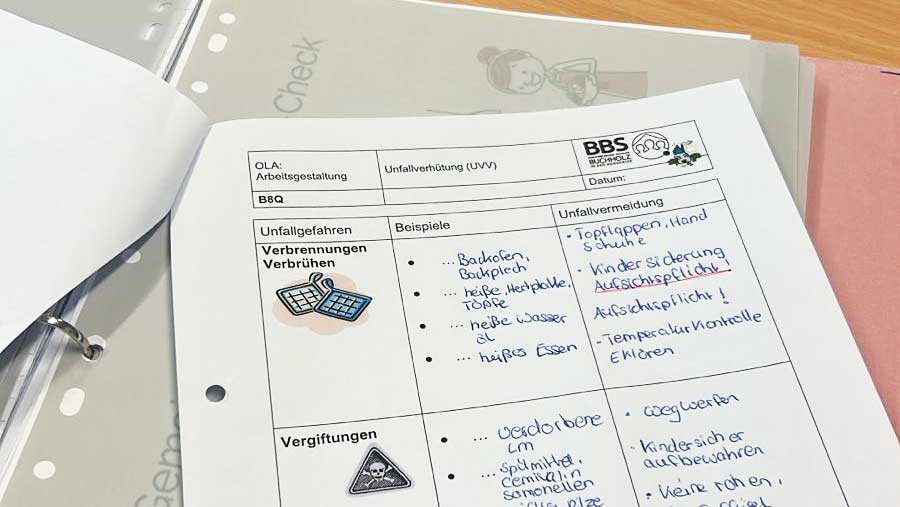 Check
OLA:
Arbeitsgestaltung
Unfallverhütung (UVV)
BBS
BUCHHOLZ
Datum:
B8Q
Unfallgefahren
Beispiele
Unfallvermeidung
Verbrennungen
Verbrühen
• ... Backofen,
Backplech
• ... heiße, Hertplatte,
Töpfe
• ... heiße Wasser
öl
• ... heißes Essen
- Topflappen, Hand
schuhe
- Kindersicherung
Aufsichtspflicht!
Aufsichtspflicht!
- Temperaturkontrolle
Eklären
Vergiftungen
• ... verdorbene
Lm
• ... Spülmittel,
samonellen
• wegwerfen
• Kindersicher
aufbewahren
• Keine rohen,
Geme